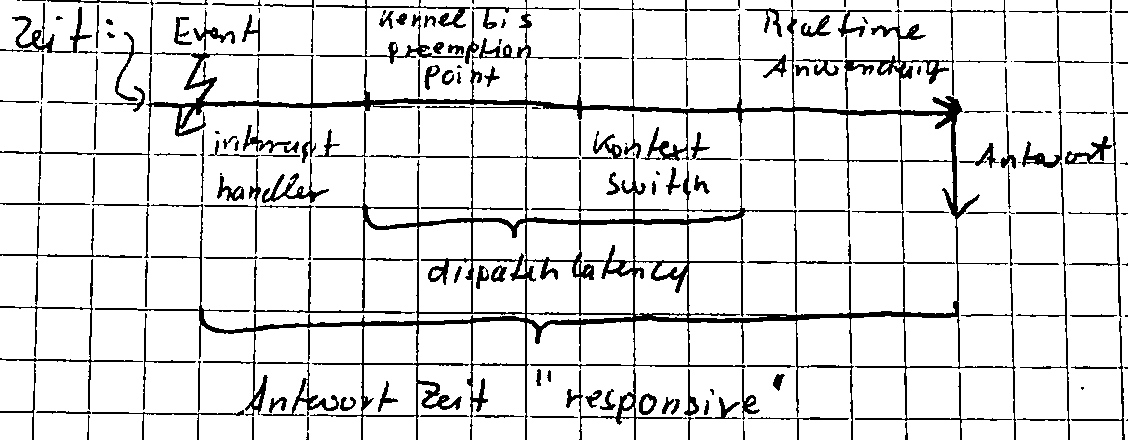 Zeit:
Event
Kernel bis
preemption
Point
Realtime
Anwendung
interrupt
handler
Kontext
switch
Antwort
dispatch latency
Antwort Zeit "responsive"